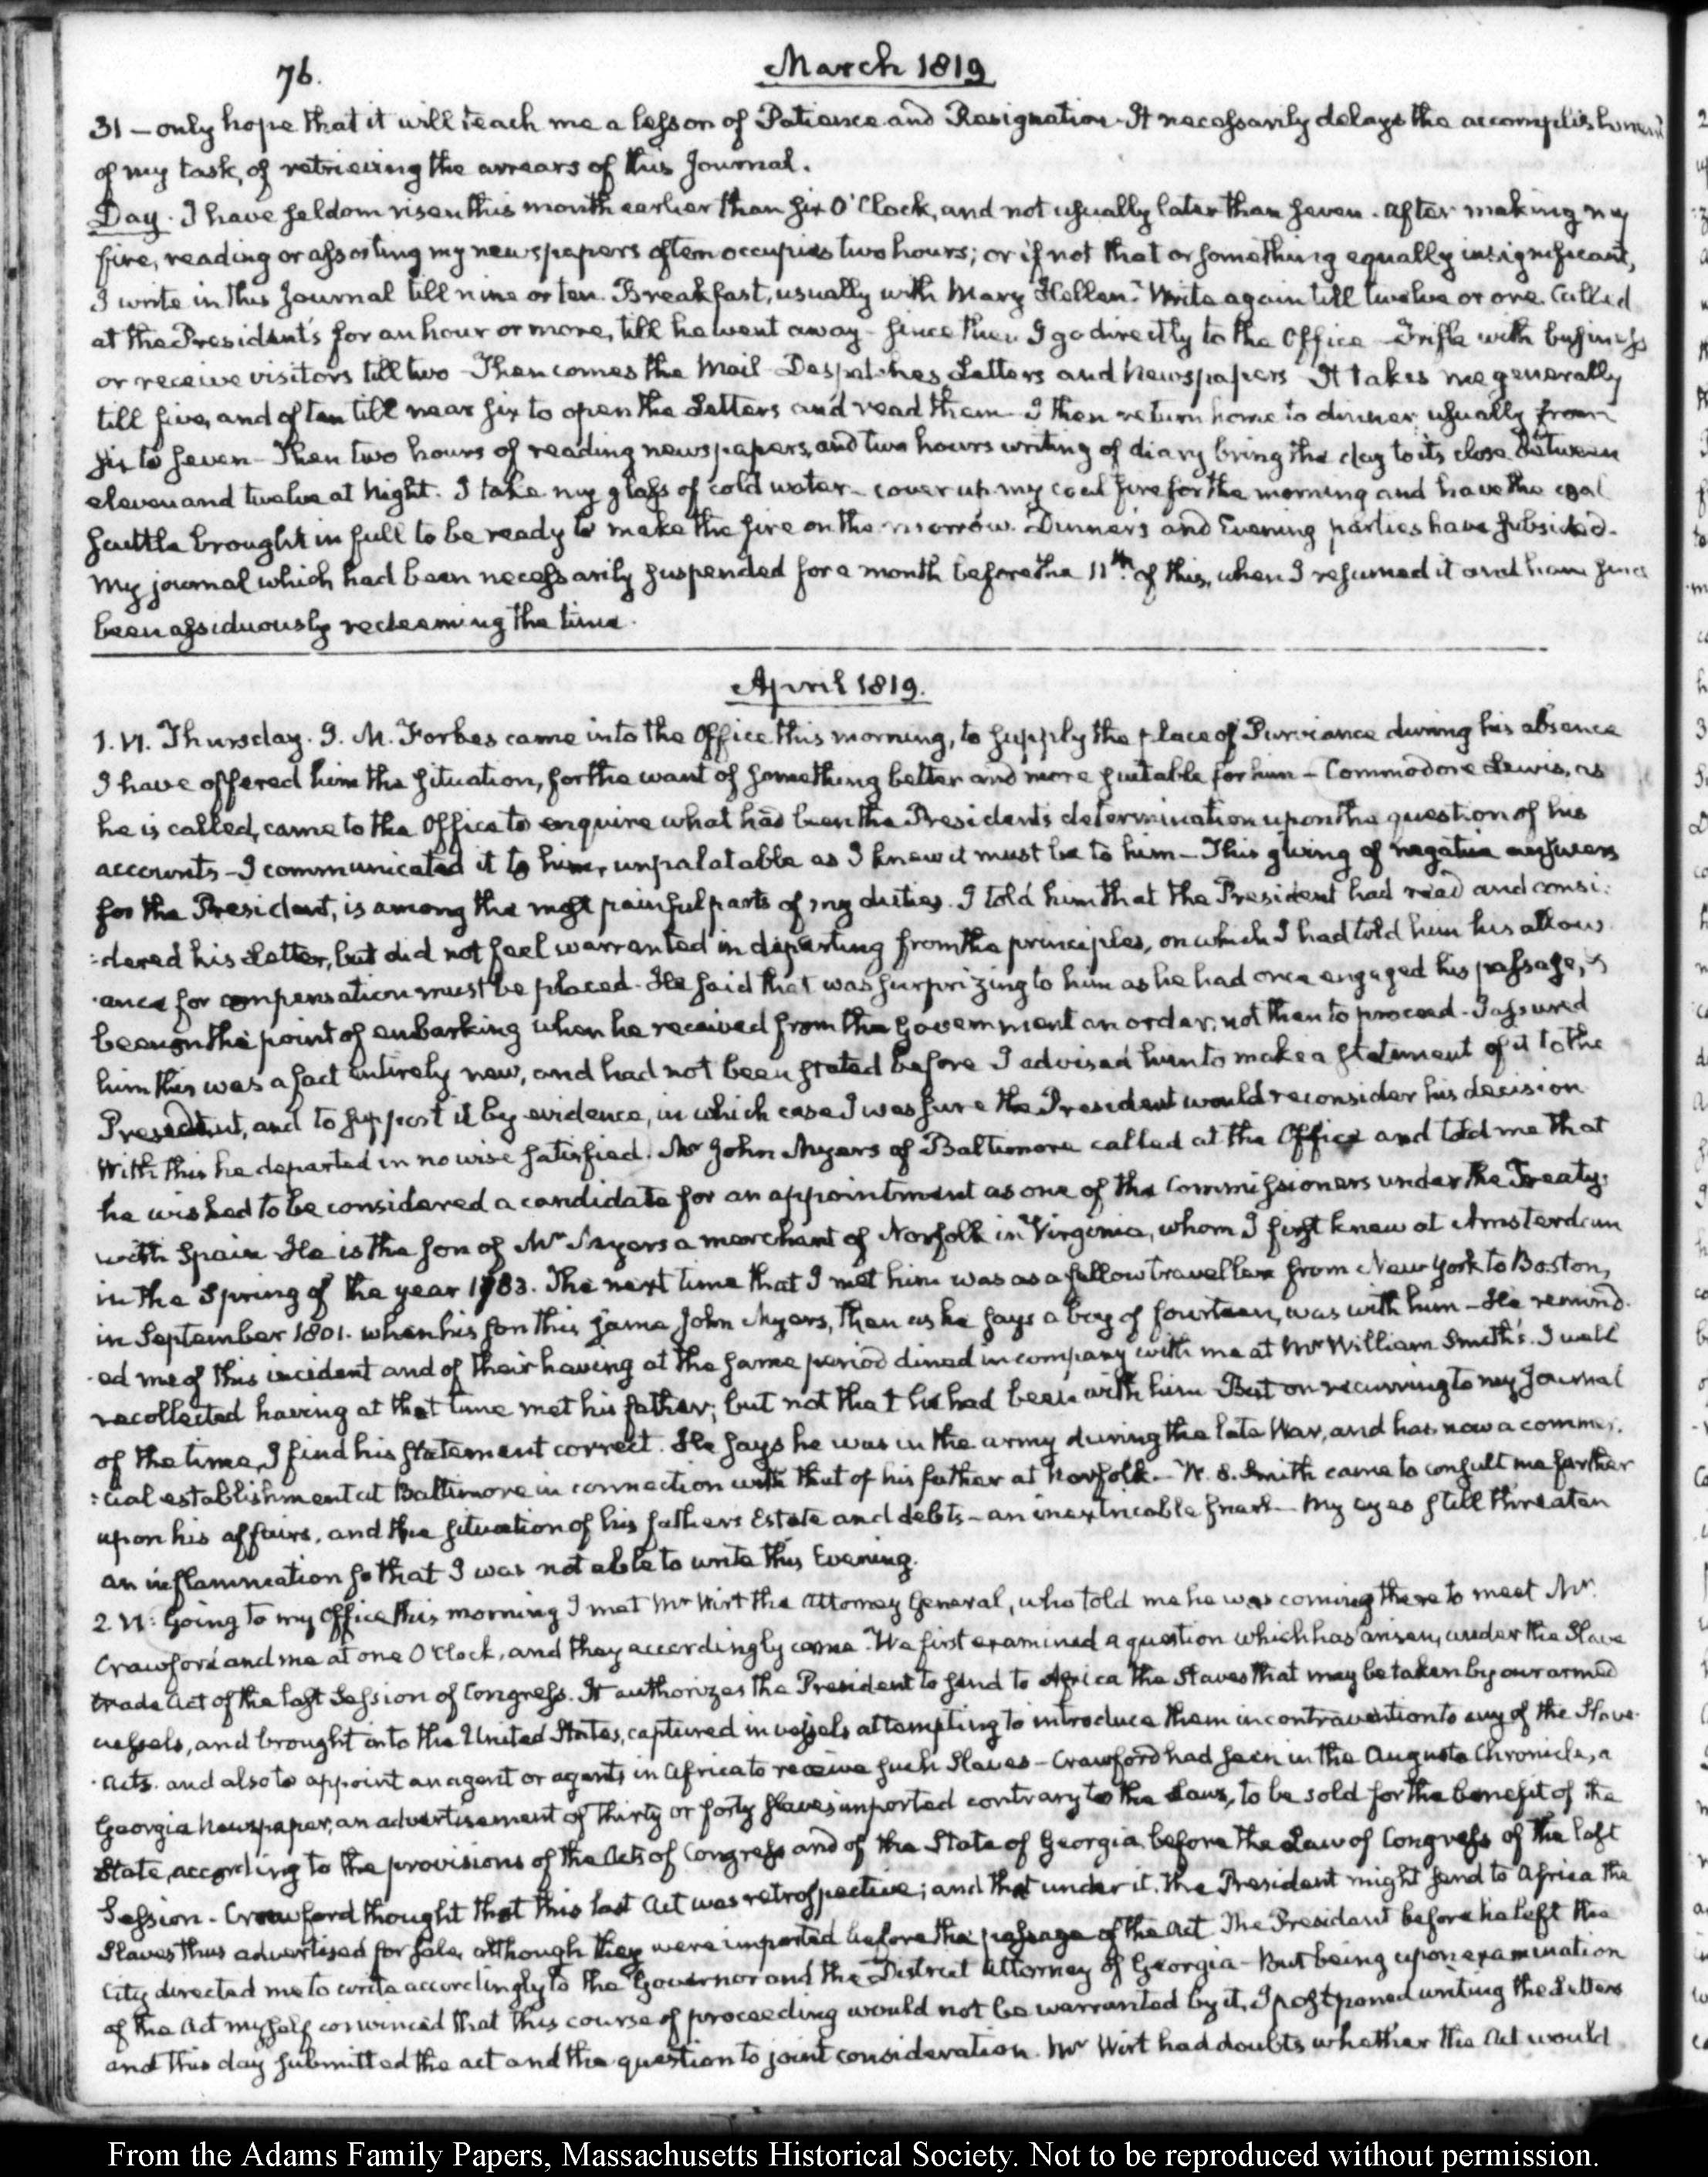 76.
March 1819
31 — only hope that it will teach me a lesson of Patience and Resignation. It necessarily delays the accomplishment
of my task, of retrieving the arrears of this Journal.
Day. I have seldom risen this month earlier than six O'Clock, and not usually later than seven. After making my
fire, reading or assorting my newspapers often occupies two hours; or if not that or something equally insignificant,
I write in this Journal till nine or ten. Breakfast, usually with Mary Hellen. Write again till twelve or one. Called
at the President's for an hour or more, till he went away — since then I go directly to the Office — Trifle with business
or receive visitors till two — Then comes the Mail — Despatches, Letters and Newspapers — It takes me generally
till five, and often till near six to open the Letters and read them — I then return home to dinner, usually from
six to seven — Then two hours of reading newspapers, and two hours writing of diary bring the day to its close between
eleven and twelve at Night. I take my glass of cold water — cover up my coal fire for the morning and have the coal
scuttle brought in full to be ready to make the fire on the morrow. Dinners and Evening parties have subsided.
My journal which had been necessarily suspended for a month before the 11th. of this, when I resumed it and have since
been assiduously redeeming the time.
April 1819.
1. VI. Thursday. J. M. Forbes came into the Office this morning, to supply the place of Purviance during his absence
I have offered him the situation, for the want of something better and more suitable for him — Commodore Lewis, as
he is called, came to the Office to enquire what had been the President's determination upon the question of his
accounts — I communicated it to him, unpalatable as I knew it must be to him — This giving of negative answers
for the President, is among the most painful parts of my duties. I told him that the President had read and consi:
:dered his Letter, but did not feel warranted in departing from the principles, on which I had told him his allow
-ance for compensation must be placed. He said that was surprizing to him as he had once engaged his passage, &
been on the point of embarking when he received from the Government an order, not then to proceed. I assured
him this was a fact entirely new, and had not been stated before. I advised him to make a statement of it to the
President, and to support it by evidence, in which case I was sure the President would reconsider his decision
With this he departed in no wise satisfied. Mr John Myers of Baltimore called at the Office and told me that
he wished to be considered a candidate for an appointment as one of the Commissioners under the Treaty:
with Spain He is the son of Mr Myers a merchant of Norfolk in Virginia, whom I first knew at Amsterdam
in the Spring of the year 1783. The next time that I met him was as a fellow traveller from New York to Boston,
in September 1801. when his son this same John Myers, then as he says a boy of fourteen, was with him — He remind
-ed me of this incident and of their having at the same period dined in company with me at Mr William Smith's. I well
recollected having at that time met his father; but not that he had been with him But on recurring to my Journal
of the time, I find his statement correct. He says he was in the army during the late War, and has now a commer:
:cial establishment at Baltimore in connection with that of his father at Norfolk — W. S. Smith came to consult me farther
upon his affairs, and the situation of his father's Estate and debts — an inextricable snarl — My eyes still threaten
an inflammation so that I was not able to write this Evening.
2. VI: Going to my Office this morning I met Mr Wirt the Attorney General, who told me he was coming there to meet Mr.
Crawford and me at one O'Clock, and they accordingly came. We first examined a question which has arisen, under the Slave
trade Act of the last Session of Congress. It authorizes the President to send to Africa the Slaves that may be taken by our armed
vessels, and brought into the United States, captured in vessels attempting to introduce them in contravention to any of the Slave-
-Acts. and also to appoint an agent or agents in Africa to receive such Slaves — Crawford had seen in the Augusta Chronicle, a
Georgia Newspaper, an advertisement of thirty or forty slaves imported contrary to the Laws, to be sold for the benefit of the
State, according to the provisions of the Acts of Congress and of the State of Georgia before the Law of Congress of the last
Session — Crawford thought that this last Act was retrospective; and that under it, the President might send to Africa the
Slaves thus advertised for sale, although they were imported before the passage of the Act The President before he left the
City directed me to write accordingly to the Governor and the District Attorney of Georgia — But being upon examination
of the Act myself convinced that this course of proceeding would not be warranted by it, I postponed writing the Letters
and this day submitted the act and the question to joint consideration. Mr Wirt had doubts whether the Act would
From the Adams Family Papers, Massachusetts Historical Society. Not to be reproduced without permission.